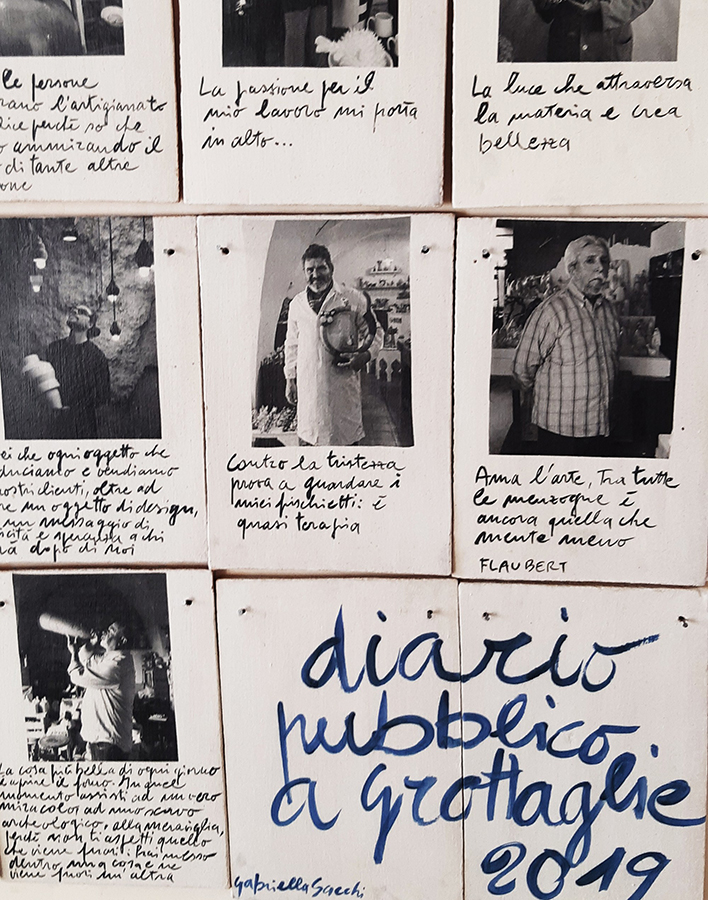 le persone
rano l'artigianato
lice perché so che
o ammirando il
di tante altre
one
La passione per il
mio lavoro mi porta
in alto...
La luce che attraversa
la materia e crea
bellezza
ei che ogni oggetto che
duciamo e vendiamo
nostri clienti, oltre ad
re un oggetto di design,
un messaggio di
cità e speranza a chi
rà dopo di noi
Contro la tristezza
prova a guardare i
miei fischietti: è
quasi terapia
Ama l'arte, tra tutte
le menzogne è
ancora quella che
mente meno
FLAUBERT
La cosa più bella di ogni giorno
è aprire il forno. In quel
momento assisti ad un vero
miracolo, ad uno scavo
archeologico, alla meraviglia,
perché non ti aspetti quello
che viene fuori: hai messo
dentro una cosa e ne
viene fuori un'altra
diario
pubblico
a grottaglie
2019
Gabriella Sacchi